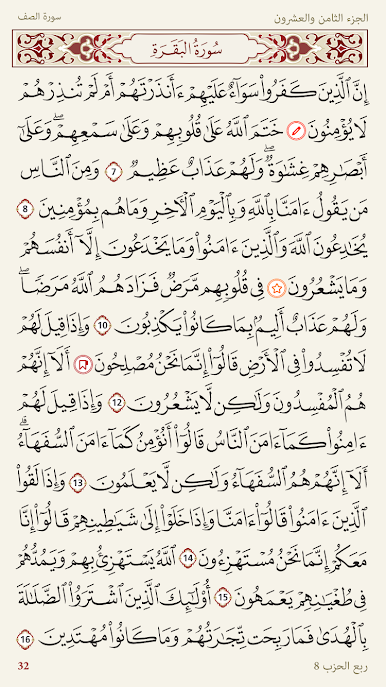 سورة الصف
الجزء الثامن والعشرون
سُورَةُ الْبَقَرَةِ
إِنَّ الَّذِينَ كَفَرُوا سَوَاءٌ عَلَيْهِمْ ءَأَنذَرْتَهُمْ أَمْ لَمْ تُنذِرْهُمْ
لَا يُؤْمِنُونَ خَتَمَ اللَّهُ عَلَىٰ قُلُوبِهِمْ وَعَلَىٰ سَمْعِهِمْ ۖ وَعَلَىٰ
أَبْصَٰرِهِمْ غِشَٰوَةٌ ۖ وَلَهُمْ عَذَابٌ عَظِيمٌ 7 وَمِنَ النَّاسِ
مَن يَقُولُ ءَامَنَّا بِاللَّهِ وَبِالْيَوْمِ الْآخِرِ وَمَا هُم بِمُؤْمِنِينَ 8
يُخَٰدِعُونَ اللَّهَ وَالَّذِينَ ءَامَنُوا وَمَا يَخْدَعُونَ إِلَّا أَنفُسَهُمْ
وَمَا يَشْعُرُونَ فِي قُلُوبِهِم مَّرَضٌ فَزَادَهُمُ اللَّهُ مَرَضًا ۖ
وَلَهُمْ عَذَابٌ أَلِيمٌ بِمَا كَانُوا يَكْذِبُونَ 10 وَإِذَا قِيلَ لَهُمْ
لَا تُفْسِدُوا فِي الْأَرْضِ قَالُوا إِنَّمَا نَحْنُ مُصْلِحُونَ أَلَا إِنَّهُمْ
هُمُ الْمُفْسِدُونَ وَلَٰكِن لَّا يَشْعُرُونَ 12 وَإِذَا قِيلَ لَهُمْ
ءَامِنُوا كَمَا ءَامَنَ النَّاسُ قَالُوا أَنُؤْمِنُ كَمَا ءَامَنَ السُّفَهَاءُ ۗ
أَلَا إِنَّهُمْ هُمُ السُّفَهَاءُ وَلَٰكِن لَّا يَعْلَمُونَ 13 وَإِذَا لَقُوا
الَّذِينَ ءَامَنُوا قَالُوا ءَامَنَّا وَإِذَا خَلَوْا إِلَىٰ شَيَٰطِينِهِمْ قَالُوا إِنَّا
مَعَكُمْ إِنَّمَا نَحْنُ مُسْتَهْزِءُونَ 14 اللَّهُ يَسْتَهْزِئُ بِهِمْ وَيَمُدُّهُمْ
فِي طُغْيَٰنِهِمْ يَعْمَهُونَ 15 أُولَٰئِكَ الَّذِينَ اشْتَرَوُا الضَّلَٰلَةَ
بِالْهُدَىٰ فَمَا رَبِحَت تِّجَٰرَتُهُمْ وَمَا كَانُوا مُهْتَدِينَ 16
ربع الحزب 8
32